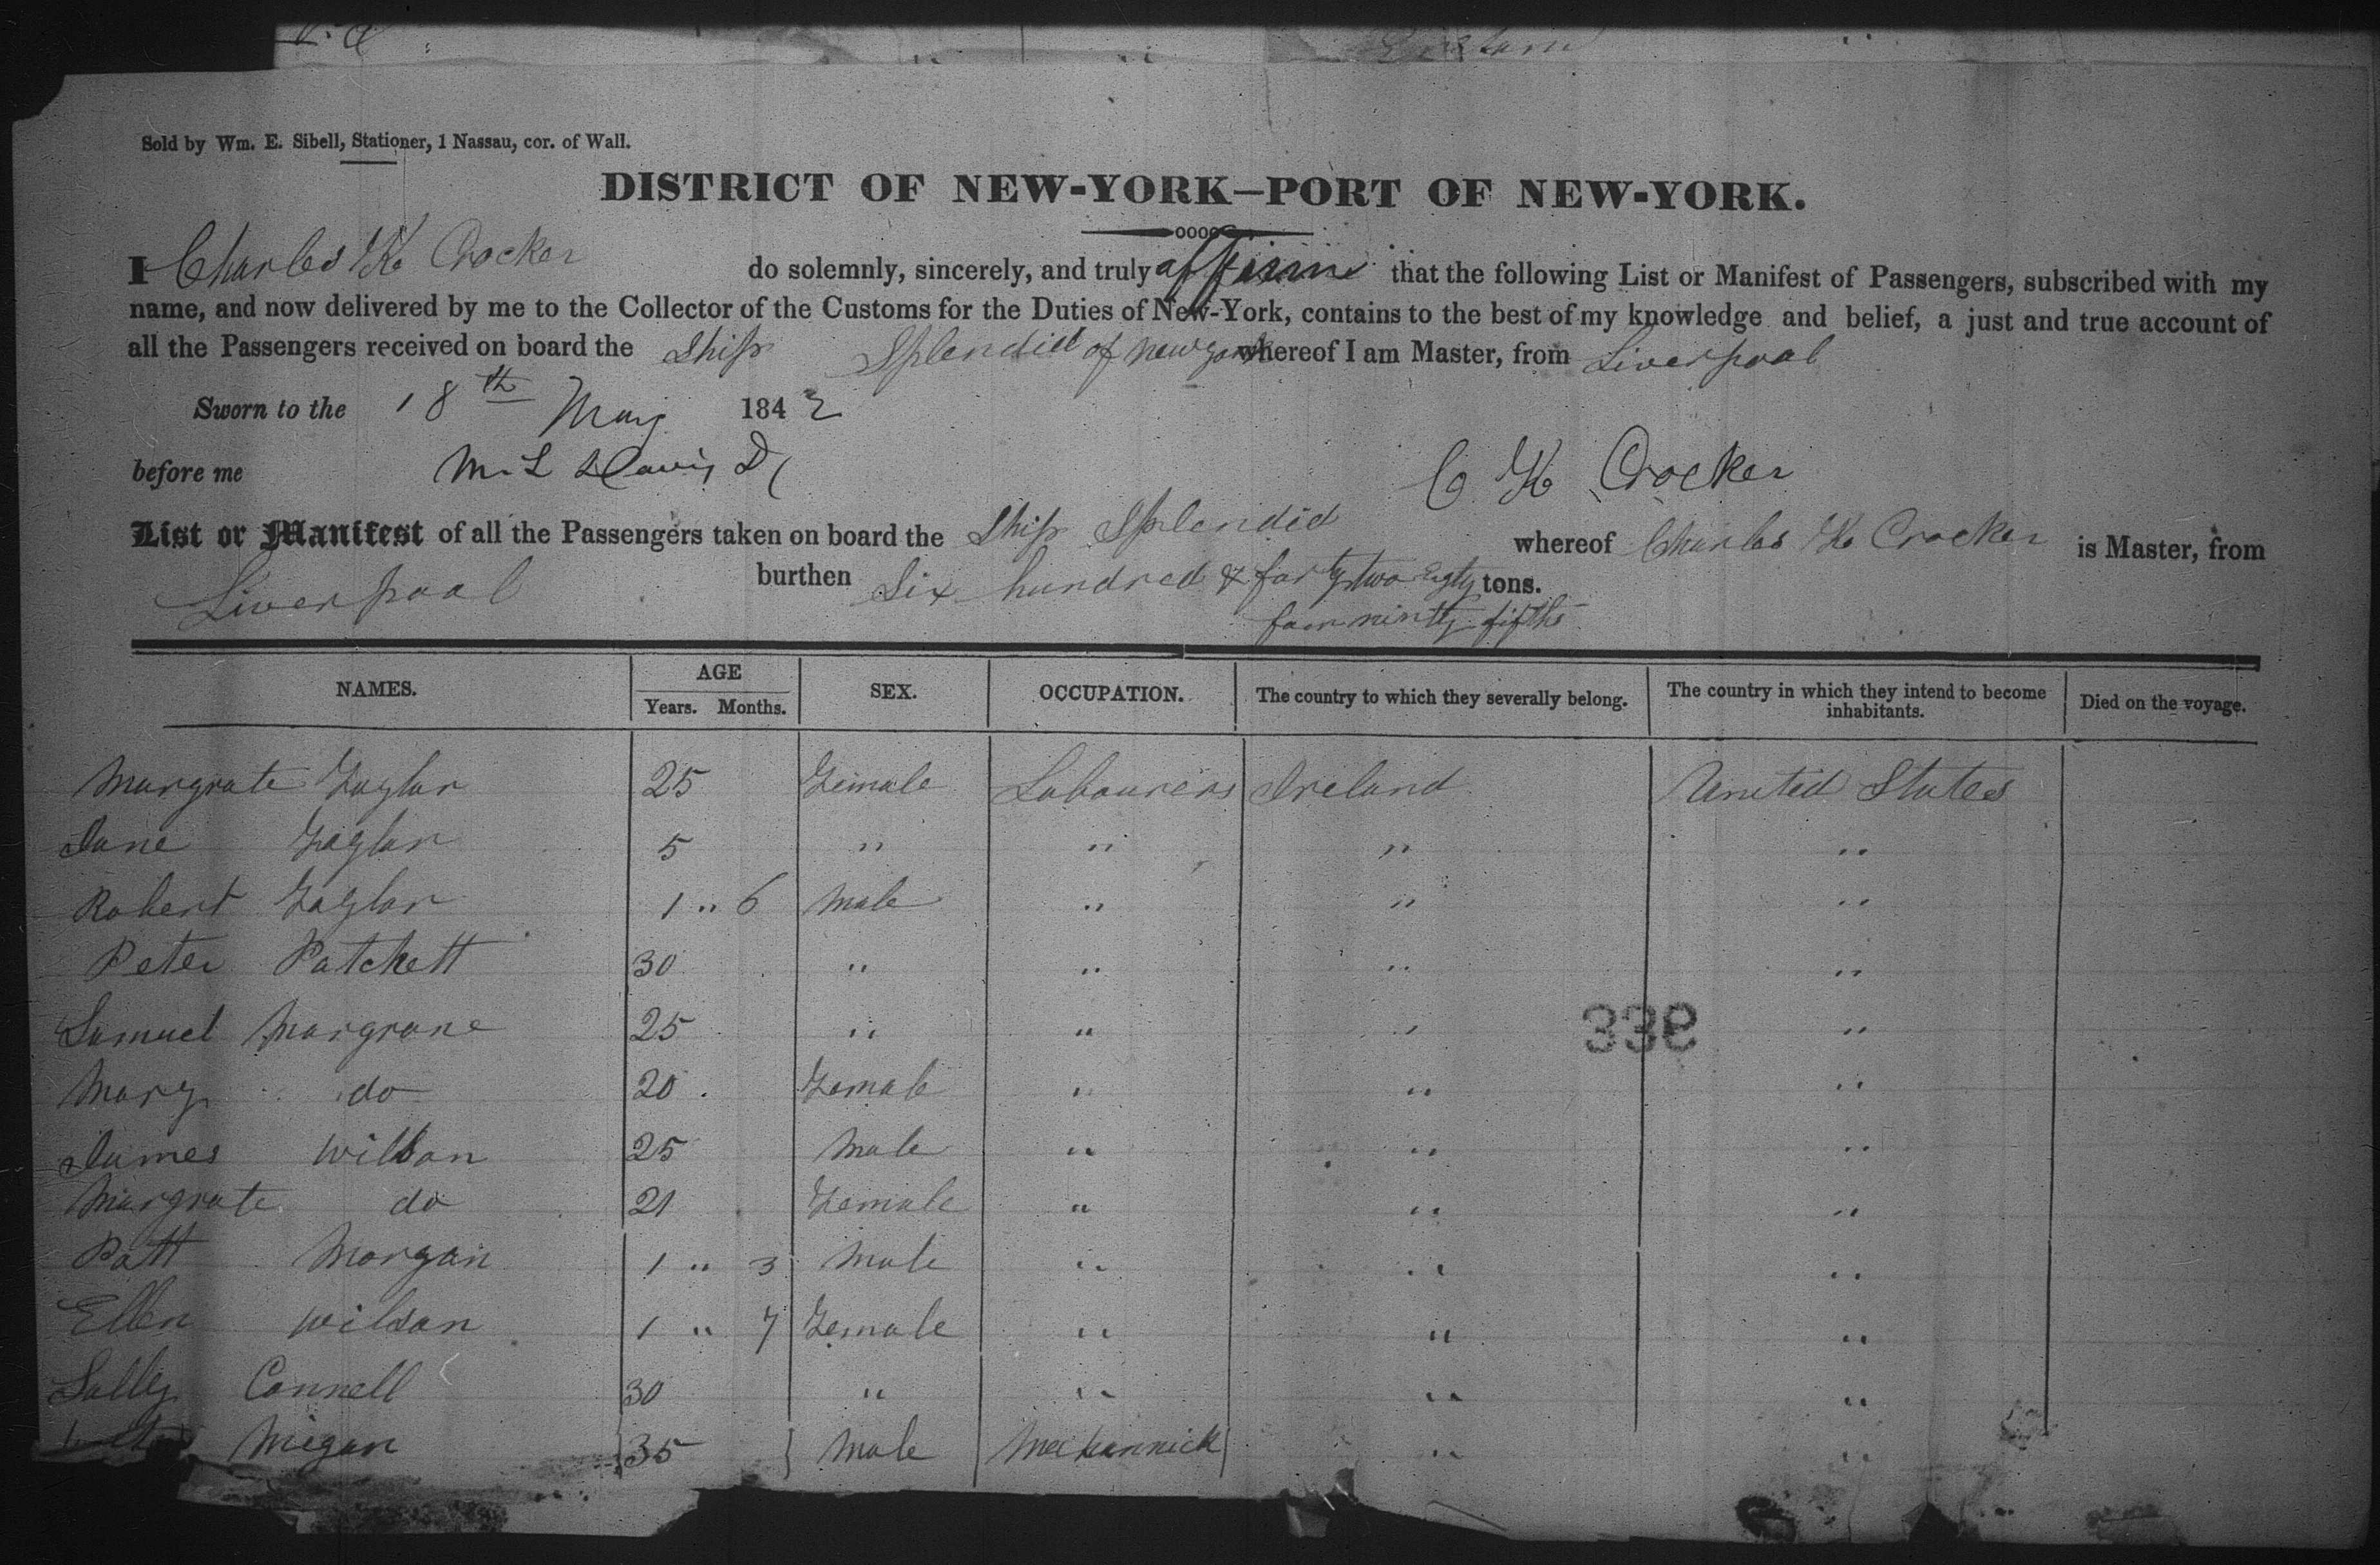 Sold by Wm. E. Sibell, Stationer, 1 Nassau, cor. of Wall.
DISTRICT OF NEW-YORK—PORT OF NEW-YORK.
I Charles K Crocker do solemnly, sincerely, and truly affirm that the following List or Manifest of Passengers, subscribed with my
name, and now delivered by me to the Collector of the Customs for the Duties of New-York, contains to the best of my knowledge and belief, a just and true account of
all the Passengers received on board the Ship Splendid of New York whereof I am Master, from Liverpool
Sworn to the 18th May 1842
before me M. L Davis D C K Crocker
List or Manifest of all the Passengers taken on board the Ship Splendid whereof Charles K Crocker is Master, from
Liverpool burthen Six hundred & forty two Eigty tons.
four ninty fifths
NAMES. AGE SEX. OCCUPATION. The country to which they severally belong. The country in which they intend to become inhabitants. Died on the voyage.
Years. Months.
Margrate Taylor 25 Female Labourers Ireland United States
Jane Taylor 5 " " " "
Robert Taylor 1 " 6 Male " " "
Peter Patchett 30 " " " "
Samuel Margrane 25 " " " "
339
Mary do 20 Female " " "
James Wilson 25 Male " " "
Margrate do 21 Female " " "
Patt Morgan 1 " 3 Male " " "
Ellen Wilson 1 " 7 Female " " "
Sally Connell 30 " " " "
Megan 35 Male Mechannick " "